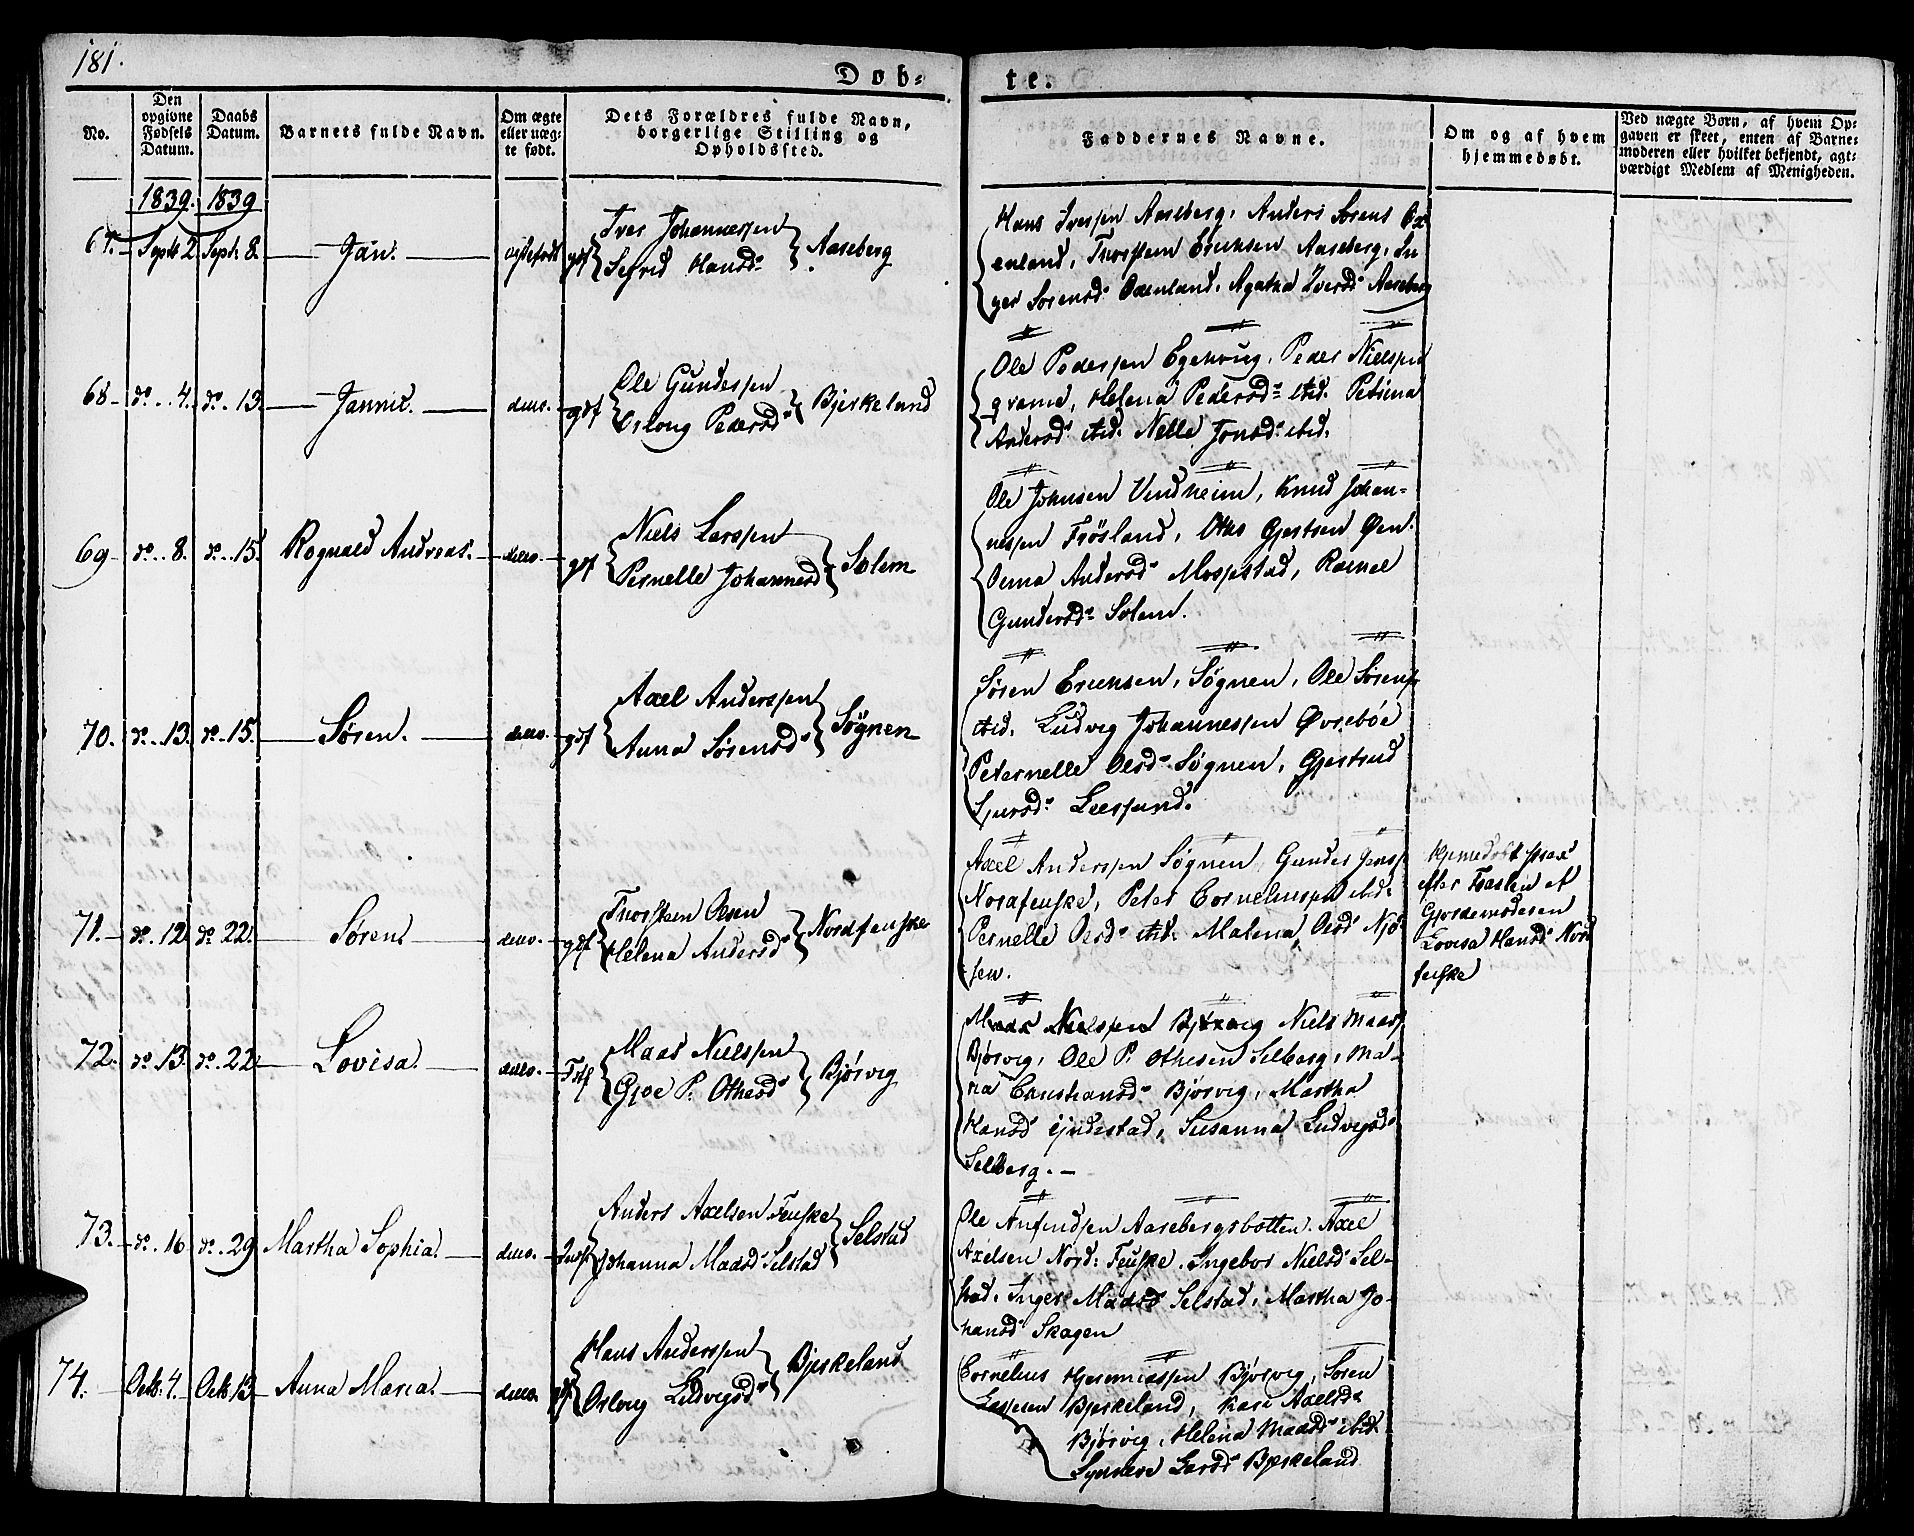 181.
Døb-te.
No.
Den opgivne Fødsels Datum.
Daabs Datum.
Barnets fulde Navn.
Om ægte eller uæg-te født.
Dets Forældres fulde Navn, borgerlige Stilling og Opholdssted.
Faddernes Navne.
Om og af hvem hjemmedøbt.
Ved uægte Børn, af hvem Op-gaven er skeet, enten af Barne-moderen eller hvilket bekjendt, agt-værdigt Medlem af Menigheden.
1839. 1839
67. Septb 2. Septb. 8. Jan. ægtefødt gdf
Iver Johannessen
Sefrid Hansd.
Aaseberg
Hans Iverssen Aaseberg, Anders Sørens Ox-
enland, Thorstem Ericksen Aaseberg, In-
ger Sørensd. Oxenland, Agatha Iversd. Aaseberg
68. do. 4. do. 13. Jannic. demo. gdf
Ole Gunderssen
Orlong Pedersd.
Bjerkeland
Ole Pederssen Egekvug, Peder Nielssen
grame, Helena Pedersd. ibid. Petrina
Andersd. ibid. Nelle Jonsd. ibid.
69. do. 8. do. 15. Rognald Andreas. demo. gdf
Niels Larssen
Pernelle Johannesd.
Solem
Ole Johnsen Vindheim, Knud Johan-
nessen Frøsland, Otto Gjertsen Øen.
Oema Andersd. Mosestad, Ramel
Gundersd. Solem.
70. do. 13. do. 15. Søren. demo. gdf
Axel Anderssen
Anna Sørensd.
Søgnen
Søren Ericksen, Søgnen, Ole Sørens.
ibid. Ludvig Johannessen Øvrebøe
Peternelle Olsd. Søgnen, Gjertrud
Sjursd. Leersund.
71. do. 12. do. 22. Søren. demo. gdf
Thorstem Olsen
Helena Andersd.
Nordfenske
Axel Anderssen Søgnen, Gunder Jenss.
Nordfenske, Peter Corneliussen ibid.
Pernelle Olsd. ibid. Malena Olsd. Njø-
sen.
Hjemedøbt strax
efter Fødselen af
Gjordemoderen
Lovisa Hansd. Nord
fenske
72. do. 13. do. 22. Lovisa. demo.
Maas Nielssen
Gjøe P. Othesd.
Bjørvig
Mads Nielssen Bjørvig Niels Maass.
Bjørvig, Ole P. Othesen Selberg, Ma-
ria Christiansd. Bjørvig, Martha
Hansd. Endestad, Susanna Ludvigsd.
Selberg.
73. do. 16 do. 29. Martha Sophia. demo.
Anders Axelsen Fenske
Johanna Madsd. Selstad
Selstad
Ole Anfindsen Aasebergsbotten. Axel
Axelsen Nord: Fenske, Ingebor Nielsd. Sel-
stad. Inger Madsd. Selstad, Martha Jo-
hansd. Skagen
74. Octb. 4. Octb 13 Anna Maria. demo. gdf
Hans Anderssen
Orlong Ludvigsd.
Bjerkeland
Cornelius Hjeremiassen Bjørvig, Søren
Lassesen Bjerkeland, Kari Axelsd.
Bjørvig, Helena Maasd. ibid.
Synneve Larsd. Bjerkeland